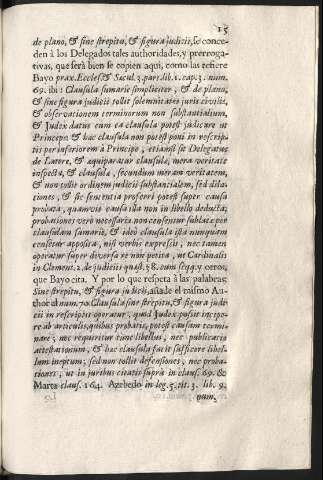 15
de plano, & sine strepitu, & figura judicii, se conce-
den à los Delegados tales authoridades, y prerroga-
tivas, que serà bien se copien aqui, como las refiere
Bayo prax. Eccles. & Sæcul. 3. part. lib. 1. cap. 3. num.
69. ibi: Clausula sumarie simpliciter, & de plano,
& sine figura judicii tollit solemnitates juris civilis,
& observationem terminorum non substantialium,
& Judex datus cum ea clausula potest judicare ut
Princeps & hac clausula non potest poni in rescrip-
tis per inferiorem à Principe, etiamsi sit Delegatus
de Latere, & æquiparatur clausula, mera veritate
inspecta, & clausula, secundum meram veritatem,
& non tollit ordinem judicii substantialem, sed dila-
tiones, & sic sententia proferri potest super causa
probata, quamvis causa illa non in libello deducta;
probationes verò necessariæ non censentur sublatæ per
clausulam sumarie, & ideò clausula ista nunquam
censetur apposita, nisi verbis expressis, nec tamen
operatur super diversa re non petita, ut Cardinalis
in Clement. 2. de judiciis quæst. 38. cum seqq. y otros,
que Bayo cita. Y por lo que respeta à las palabras;
Sine strepitu, & figura judicii, añade el mismo Au-
thor al num. 70. Clausula sine strepitu, & figura judi-
cii in rescriptis operatur, quod Judex possit incipe-
re ab articulis, quibus probatis, potest causam termi-
nare; nec requiritur tunc libellus, nec publicatio
attestationum, & hac clausula facit sufficere libel-
lum ineptum; sed non tollit defensiones, nec proba-
tiones, ut in juribus citatis suprà in claus. 69. &
Marta claus. 164. Azebedo in leg. 5. tit. 3. lib. 9.
num.